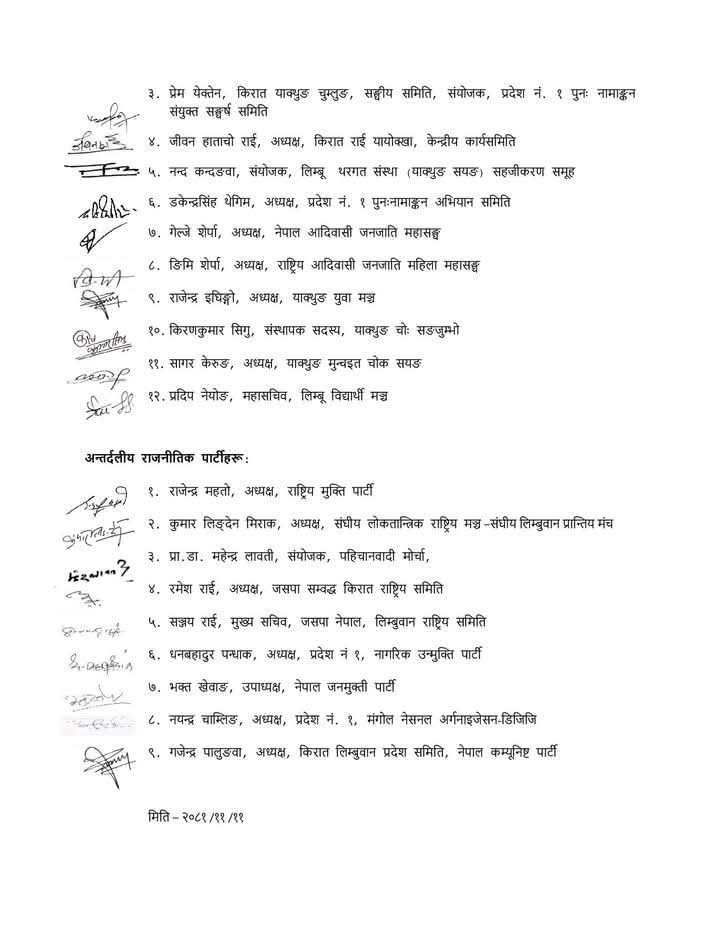 ३. प्रेम येक्तेन, किरात याक्थुङ चुम्लुङ, सङ्घीय समिति, संयोजक, प्रदेश नं. १ पुनः नामाङ्कन
संयुक्त सङ्घर्ष समिति
४. जीवन हाताचो राई, अध्यक्ष, किरात राई यायोक्खा, केन्द्रीय कार्यसमिति
५. नन्द कन्दङवा, संयोजक, लिम्बू थरगत संस्था (याक्थुङ सयङ) सहजीकरण समूह
६. डकेन्द्रसिंह थेगिम, अध्यक्ष, प्रदेश नं. १ पुनःनामाङ्कन अभियान समिति
७. गेल्जे शेर्पा, अध्यक्ष, नेपाल आदिवासी जनजाति महासङ्घ
८. ङिमि शेर्पा, अध्यक्ष, राष्ट्रिय आदिवासी जनजाति महिला महासङ्घ
९. राजेन्द्र इघिङ्गो, अध्यक्ष, याक्थुङ युवा मञ्च
१०. किरणकुमार सिगु, संस्थापक सदस्य, याक्थुङ चोः सङजुम्भो
११. सागर केरुङ, अध्यक्ष, याक्थुङ मुन्धइत चोक सयङ
१२. प्रदिप नेयोङ, महासचिव, लिम्बू विद्यार्थी मञ्च
अन्तर्दलीय राजनीतिक पार्टीहरू:
१. राजेन्द्र महतो, अध्यक्ष, राष्ट्रिय मुक्ति पार्टी
२. कुमार लिङ्देन मिराक, अध्यक्ष, संघीय लोकतान्त्रिक राष्ट्रिय मञ्च –संघीय लिम्बुवान प्रान्तिय मंच
३. प्रा.डा. महेन्द्र लावती, संयोजक, पहिचानवादी मोर्चा,
४. रमेश राई, अध्यक्ष, जसपा सम्वद्ध किरात राष्ट्रिय समिति
५. सञ्जय राई, मुख्य सचिव, जसपा नेपाल, लिम्बुवान राष्ट्रिय समिति
६. धनबहादुर पन्धाक, अध्यक्ष, प्रदेश नं १, नागरिक उन्मुक्ति पार्टी
७. भक्त खेवाङ, उपाध्यक्ष, नेपाल जनमुक्ती पार्टी
८. नयन्द्र चाम्लिङ, अध्यक्ष, प्रदेश नं. १, मंगोल नेसनल अर्गनाइजेसन-डिजिजि
९. गजेन्द्र पालुङवा, अध्यक्ष, किरात लिम्बुवान प्रदेश समिति, नेपाल कम्यूनिष्ट पार्टी
मिति – २०८१ /११ /११